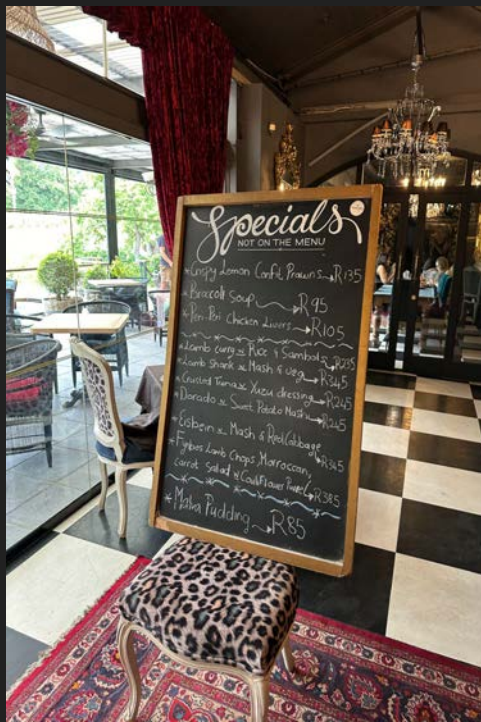 Specials
NOT ON THE MENU
* Crispy Lemon Confit Prawns → R135
* Broccoli Soup → R95
* Peri-Peri Chicken Livers → R105
* Lamb curry & Rice & Sambals → R235
* Lamb Shank & Mash & veg → R345
* Crusted Tuna & Yuzu dressing → R245
* Dorado & Sweet Potato Mash → R245
* Eisbein & Mash & Red Cabbage → R345
* Fynbos Lamb Chops, Morroccan
carrot salad & Cauliflower Puree → R385
* Malva Pudding → R85